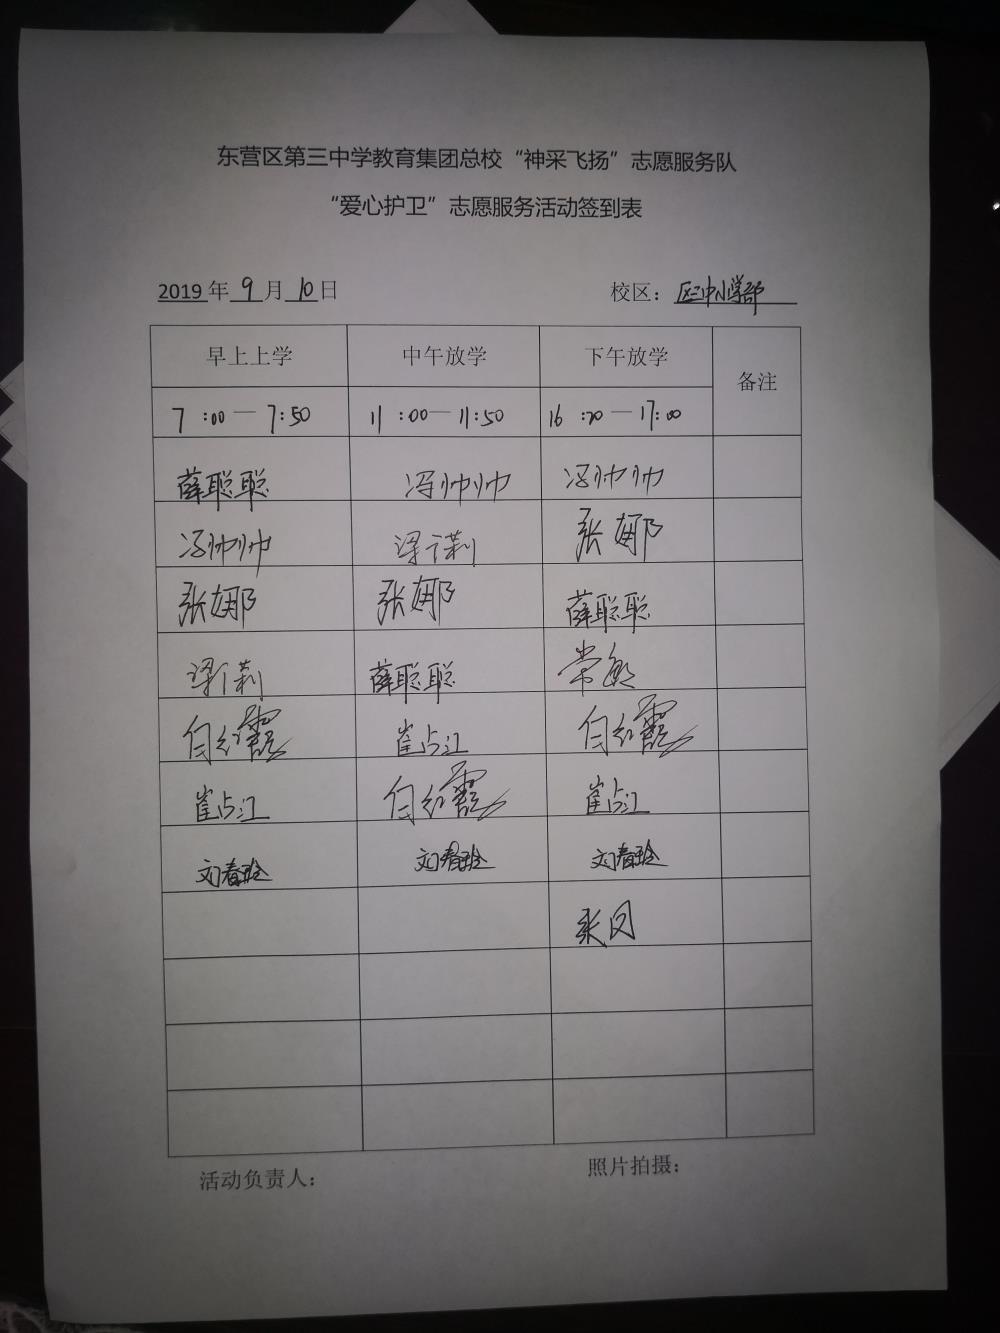 东营区第三中学教育集团总校“神采飞扬”志愿服务队
“爱心护卫”志愿服务活动签到表
2019年 9 月 10 日 校区：区三中小学部
早上上学 中午放学 下午放学 备注
7:00—7:50 11:00—11:50 16:20—17:00
薛聪聪 冯帅帅 冯帅帅
冯帅帅 梁莉 张娜
张娜 张娜 薛聪聪
梁莉 薛聪聪 常敏
闫红霞 崔占江 闫红霞
崔占江 闫红霞 崔占江
刘春玲 刘春玲 刘春玲
张冈
活动负责人： 照片拍摄：